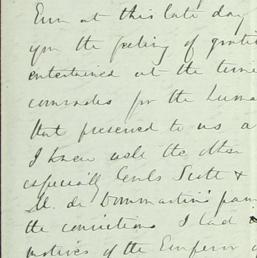 Even at this late day
you the feeling of grati
entertained at the time
comrades for the huma
that preserved to us a
I knew well the other
especially Genls Scott &
M. de Dommartin's
the convictions I had
motives of the Emperor